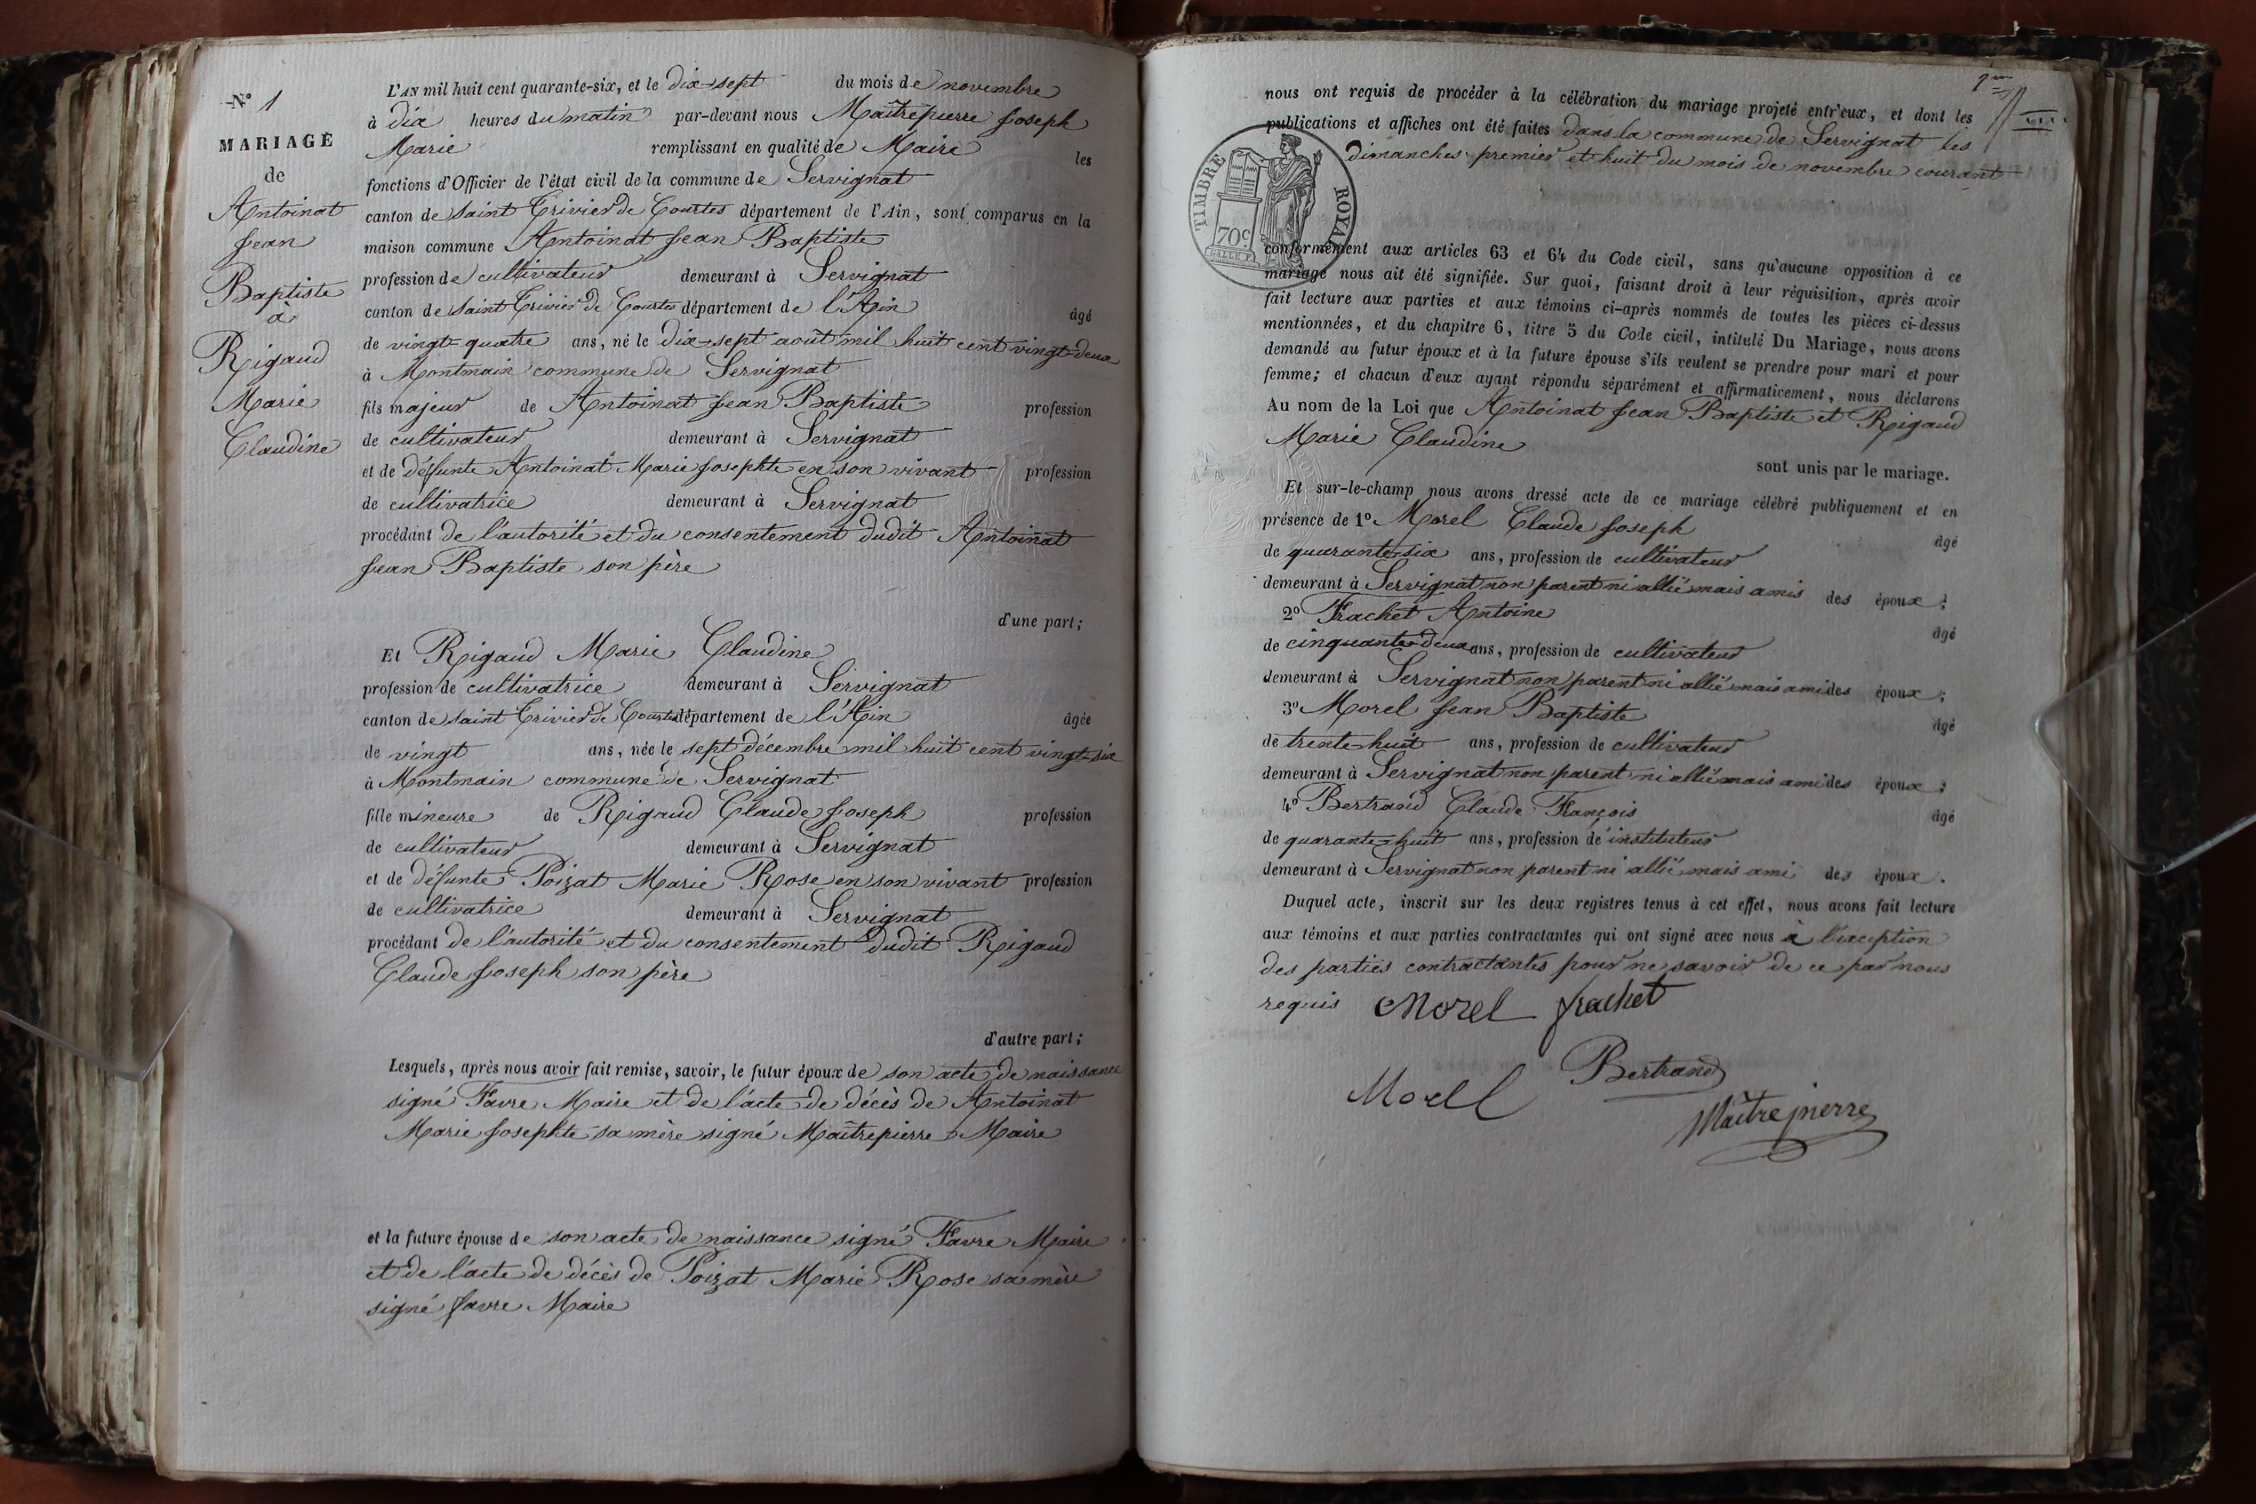 N° 1
MARIAGE
de
Antoinat
Jean
Baptiste
à
Rigaud
Marie
Claudine
L'AN mil huit cent quarante-six, et le dix-sept du mois de novembre
à dix heures du matin par-devant nous Maîtrepierre Joseph
Marie remplissant en qualité de Maire les
fonctions d'Officier de l'état civil de la commune de Servignat
canton de Saint Trivier de Courtes département de l'Ain, sont comparus en la
maison commune Antoinat Jean Baptiste
profession de cultivateur demeurant à Servignat
canton de Saint Trivier de Courtes département de l'Ain âgé
de vingt-quatre ans, né le dix-sept août mil huit cent vingt-deux
à Montmain commune de Servignat
fils majeur de Antoinat Jean Baptiste profession
de cultivateur demeurant à Servignat
et de défunte Antoinat Marie Josephte en son vivant profession
de cultivatrice demeurant à Servignat
procédant de l'autorité et du consentement dudit Antoinat
Jean Baptiste son père
d'une part;
Et Rigaud Marie Claudine
profession de cultivatrice demeurant à Servignat
canton de Saint Trivier de Courtes département de l'Ain âgée
de vingt ans, née le sept décembre mil huit cent vingt-six
à Montmain commune de Servignat
fille mineure de Rigaud Claude Joseph profession
de cultivateur demeurant à Servignat
et de défunte Poizat Marie Rose en son vivant profession
de cultivatrice demeurant à Servignat
procédant de l'autorité et du consentement dudit Rigaud
Claude Joseph son père
d'autre part;
Lesquels, après nous avoir fait remise, savoir, le futur époux de son acte de naissance
signé Favre Maire et de l'acte de décès de Antoinat
Marie Josephte sa mère signé Maîtrepierre Maire
et la future épouse de son acte de naissance signé Favre Maire
et de l'acte de décès de Poizat Marie Rose sa mère
signé Favre Maire
nous ont requis de procéder à la célébration du mariage projeté entr'eux, et dont les
publications et affiches ont été faites dans la commune de Servignat les
dimanches premier et huit du mois de novembre courant
TIMBRE ROYAL
70c
conformément aux articles 63 et 64 du Code civil, sans qu'aucune opposition à ce
mariage nous ait été signifiée. Sur quoi, faisant droit à leur réquisition, après avoir
fait lecture aux parties et aux témoins ci-après nommés de toutes les pièces ci-dessus
mentionnées, et du chapitre 6, titre 5 du Code civil, intitulé Du Mariage, nous avons
demandé au futur époux et à la future épouse s'ils veulent se prendre pour mari et pour
femme; et chacun d'eux ayant répondu séparément et affirmativement, nous déclarons
Au nom de la Loi que Antoinat Jean Baptiste et Rigaud
Marie Claudine
sont unis par le mariage.
Et sur-le-champ nous avons dressé acte de ce mariage célébré publiquement et en
présence de 1° Morel Claude Joseph
âgé
de quarante-six ans, profession de cultivateur
demeurant à Servignat non parent ni allié mais amis des époux;
2° Frachet Antoine
âgé
de cinquante-deux ans, profession de cultivateur
demeurant à Servignat non parent ni allié mais ami des époux;
3° Morel Jean Baptiste
âgé
de trente-huit ans, profession de cultivateur
demeurant à Servignat non parent ni allié mais ami des époux;
4° Bertrand Claude François
âgé
de quarante-huit ans, profession de instituteur
demeurant à Servignat non parent ni allié mais ami des époux.
Duquel acte, inscrit sur les deux registres tenus à cet effet, nous avons fait lecture
aux témoins et aux parties contractantes qui ont signé avec nous à l'exception
des parties contractantes pour ne savoir de ce par nous
requis Morel frachet
Bertrand
Morel
Maître pierre